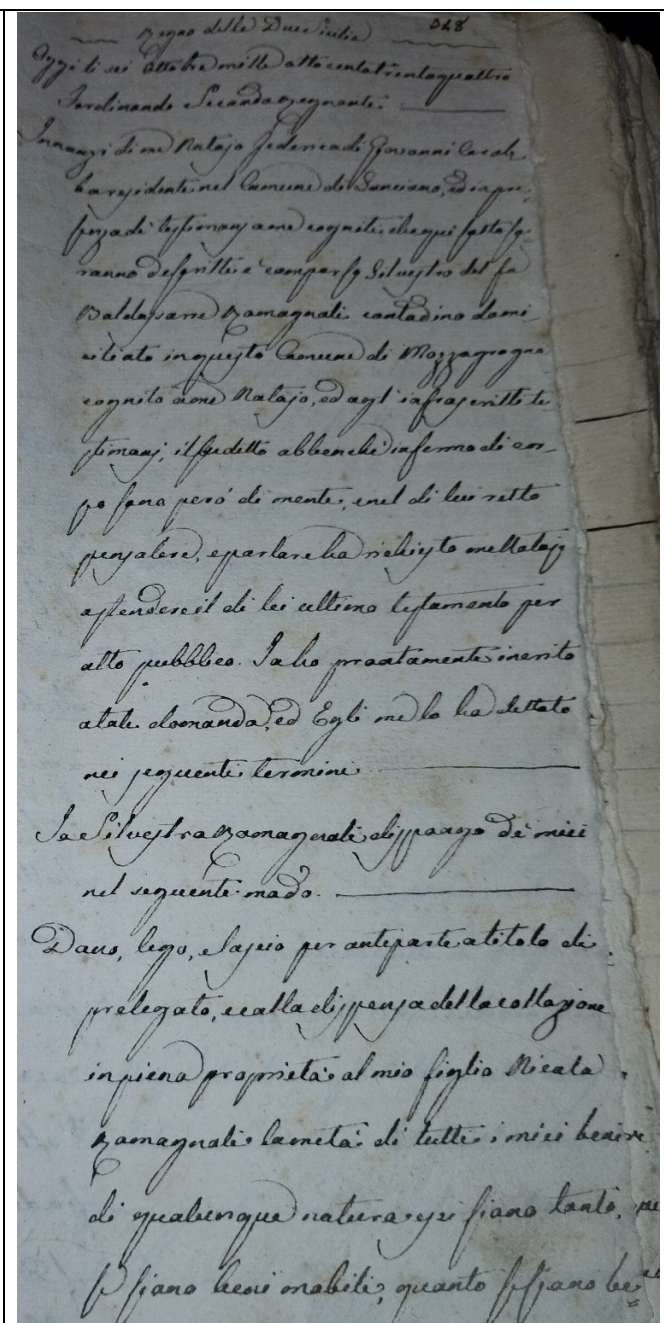 Regno delle Due Sicilie 348
Oggi li sei Ottobre mille otto cento trentaquattro
Ferdinando Secondo regnante.
Innanzi di me Notajo Federico di Giovanni Carab
ba residente nel Comune di Lanciano, ed in pre-
senza dè testimonj a me cogniti, che qui sotto sa-
ranno descritti è comparso Silvestro del fu
Baldassarre Romagnoli contadino domi
ciliato in questo Comune di Mozzagrogna
cognito a me Notajo, ed agl' infrascritti te
stimonj; il sudetto abbenchè infermo di cor-
po sano però di mente, e nel di lui retto
pensalere, e parlare ha richiesto me Notajo
a stendere il di lei ultimo testamento per
atto pubblico. Io ho prontamente inerito
a tale domanda, ed Egli me lo ha dettato
nei seguenti termini
Io Silvestro Romagnoli dispongo de' miei
nel seguente modo.
Dono, lego, e lascio per antiparte a titolo di
prelegato, e colla dispensa della collazione
in piena proprietà al mio figlio Nicola
Romagnoli la metà di tutti i miei beni
di qualunque natura essi siano tanto,
se siano beni mobili, quanto se siano be